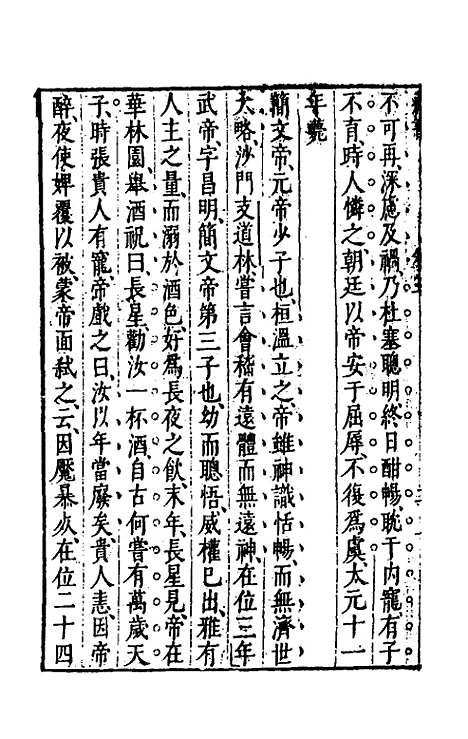 不可再、深慮及禍、乃杜塞聰明、終日酣暢、耽于內寵、有子
不育、時人憐之、朝廷以帝安于屈辱、不復爲虞、太元十一
年薨
簡文帝、元帝少子也、桓溫立之、帝雖神識恬暢、而無濟世
大略、沙門支道林嘗言、會稽有遠體而無遠神、在位三年
武帝、字昌明、簡文帝第三子也、幼而聰悟、威權已出、雅有
人主之量、而溺於酒色、好爲長夜之飲、末年、長星見、帝在
華林園、舉酒祝曰、長星勸汝一杯酒、自古何嘗有萬歲天
子、時張貴人有寵、帝戲之曰、汝以年當廢矣、貴人恚、因帝
醉、夜使婢覆以被、蒙帝面弒之、云、因魘暴崩、在位二十四